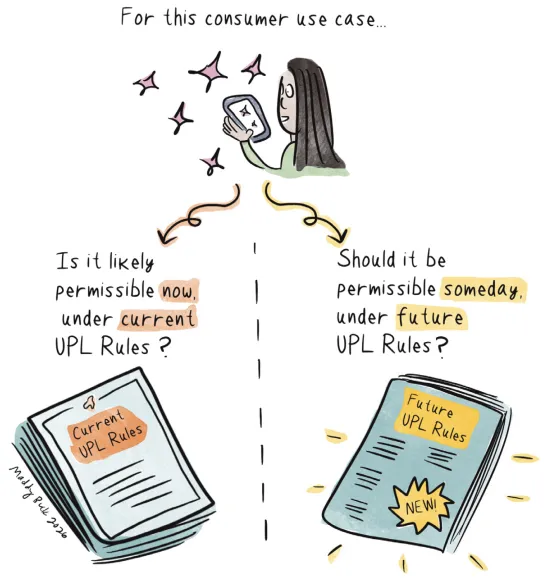 For this consumer use case...
Is it likely
permissible now,
under current
UPL Rules?
Should it be
permissible someday,
under future
UPL Rules?
Current
UPL Rules
Future
UPL Rules
NEW!
Maddy Buck 2026